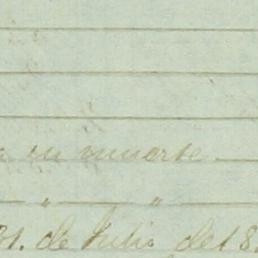 en muerte.
" "
21. de Julio de 18